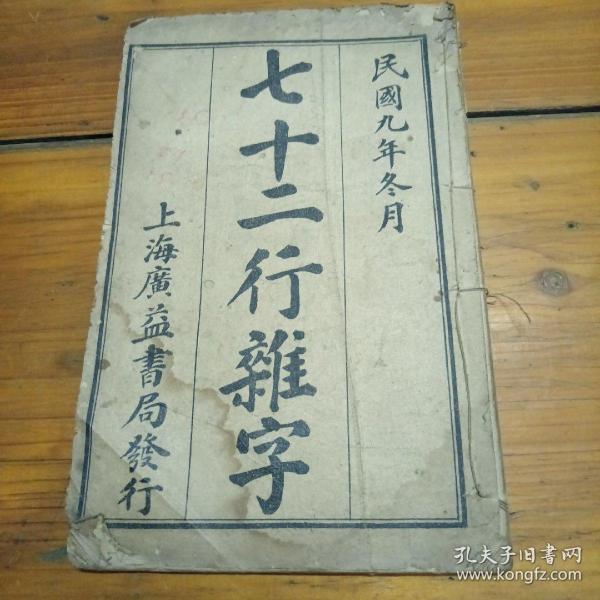 民國九年冬月
七十二行雜字
上海廣益書局發行
孔夫子旧書网
www.kongfz.com